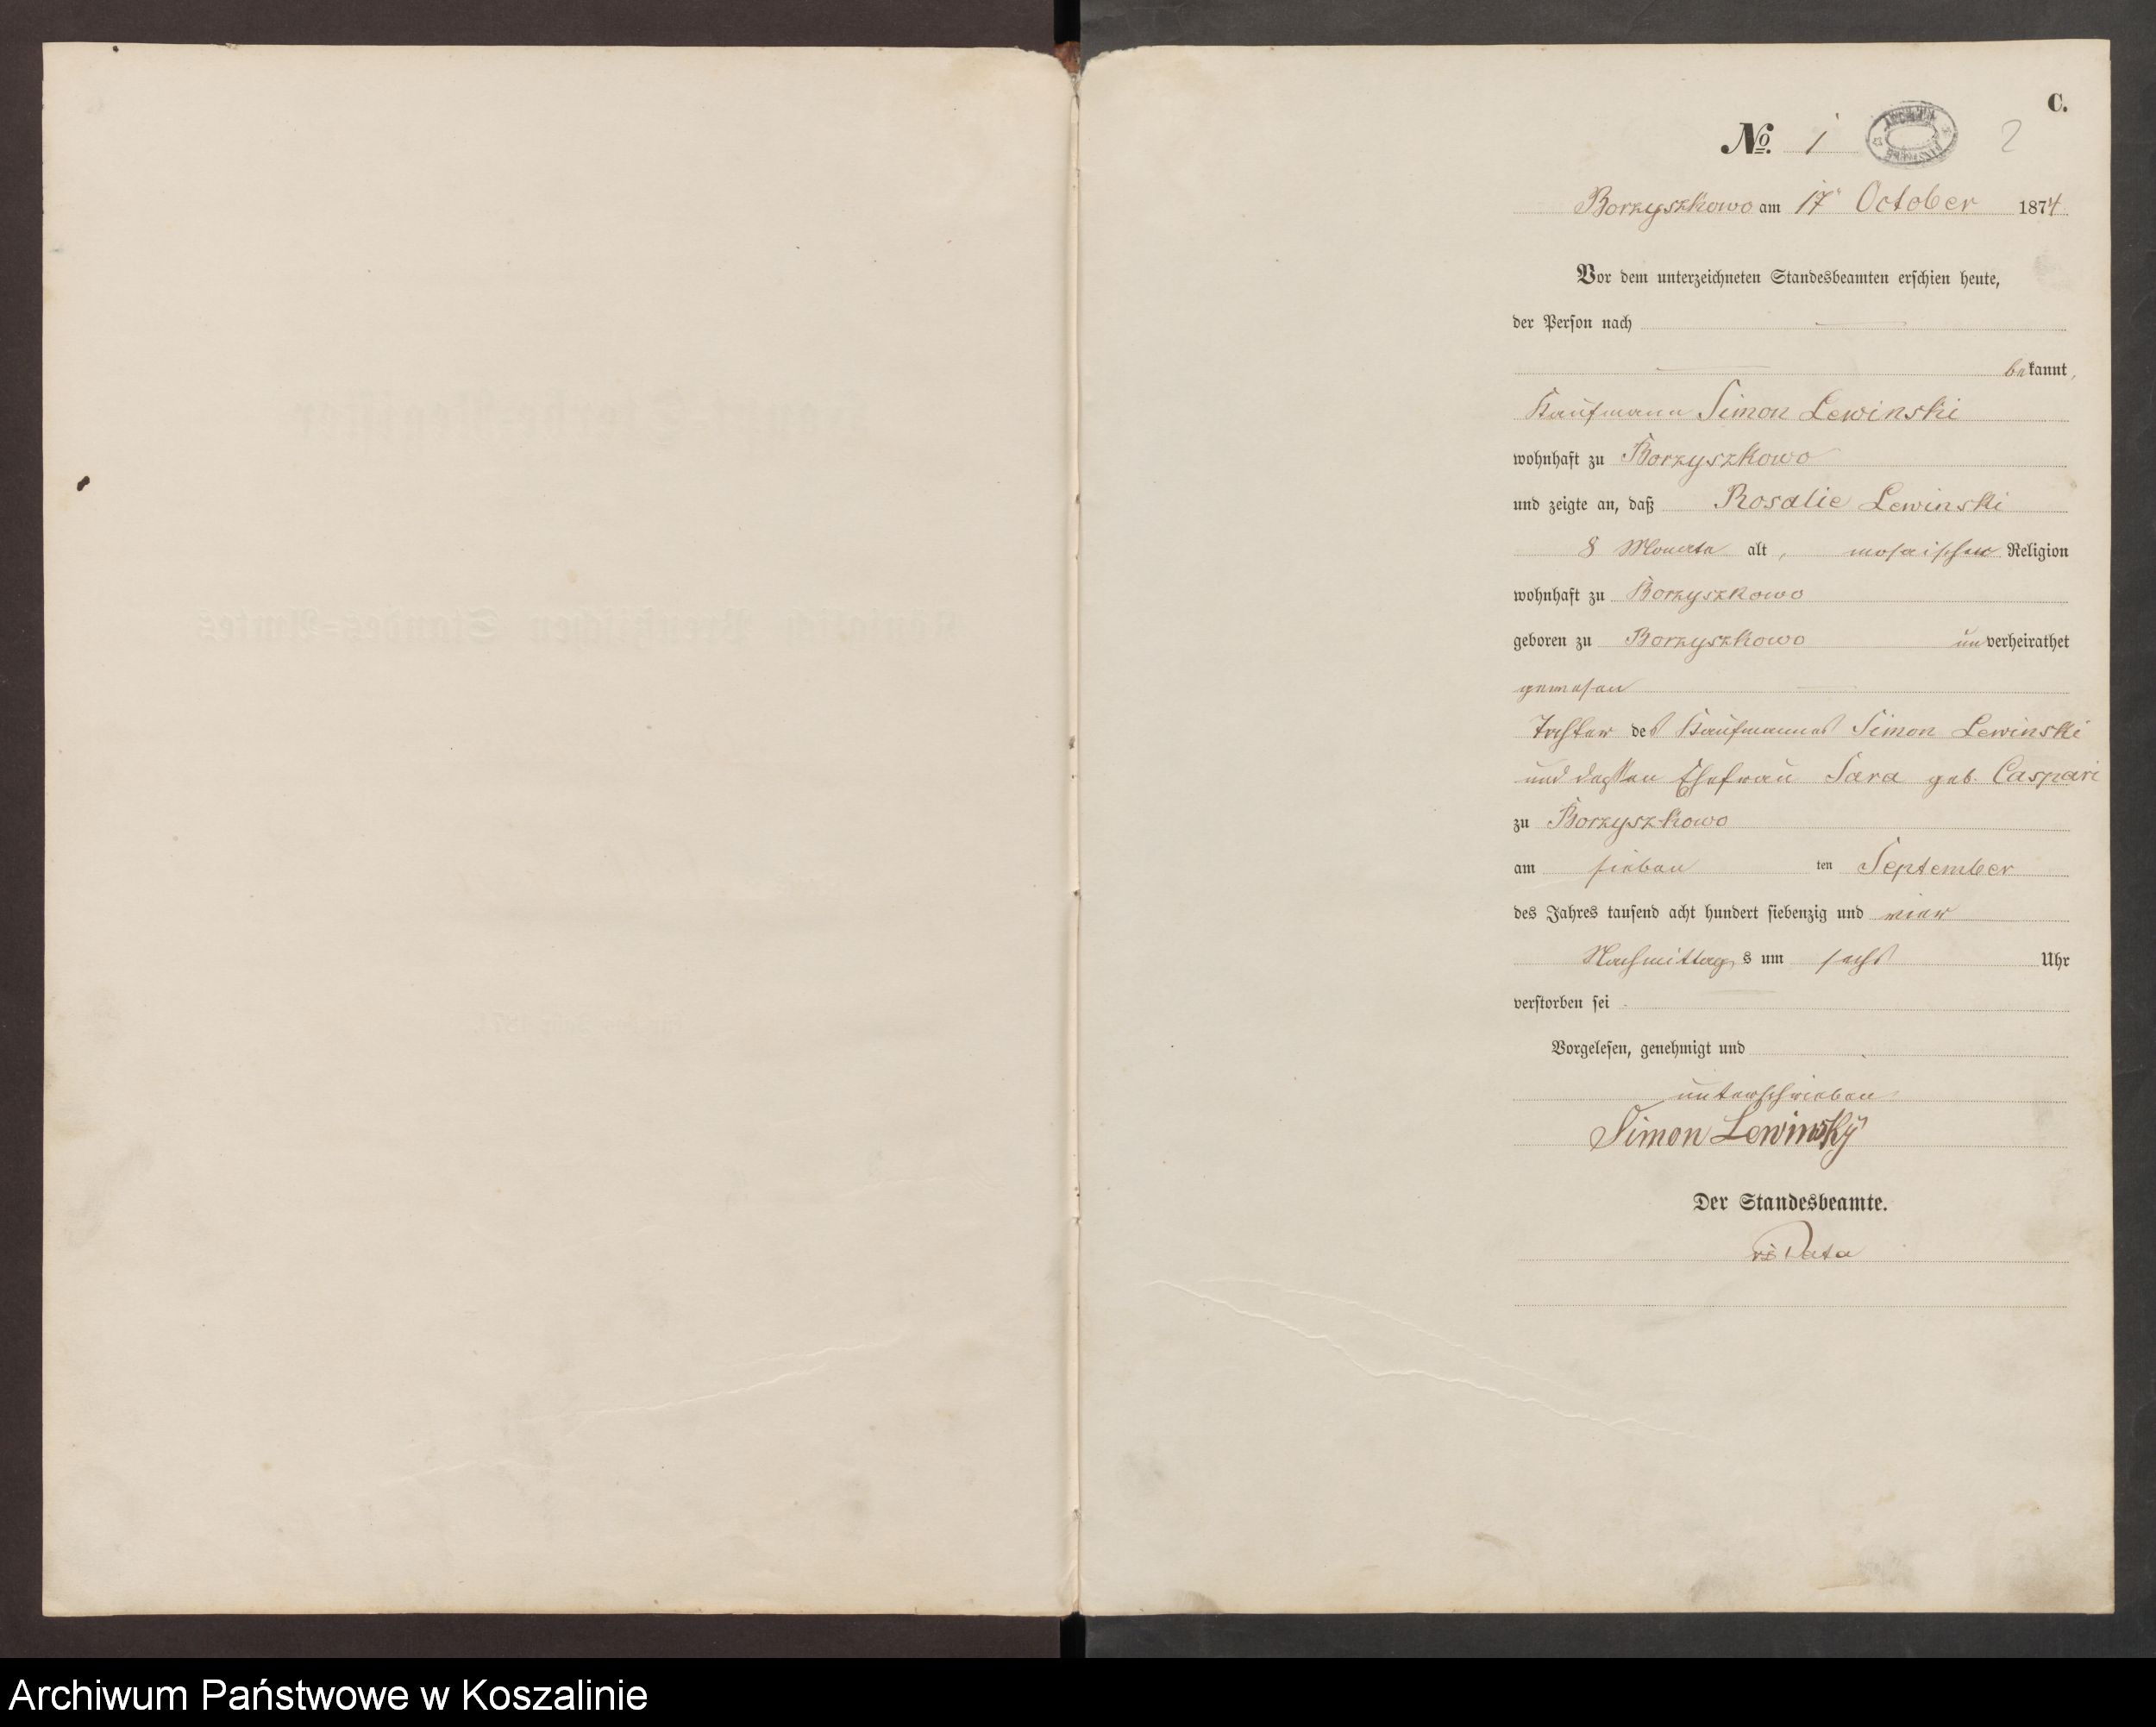 C.
No. 1
2
Borzyszkowo am 17" October 1874
Vor dem unterzeichneten Standesbeamten erschien heute,
der Person nach
bekannt,
Kaufmann Simon Lewinski
wohnhaft zu Borzyszkowo
und zeigte an, daß Rosalie Lewinski
8 Monate alt, mosaischer Religion
wohnhaft zu Borzyszkowo
geboren zu Borzyszkowo unverheirathet
gewesen
Tochter des Kaufmannes Simon Lewinski
und dessen Ehefrau Sara geb. Caspari
zu Borzyszkowo
am sieben ten September
des Jahres tausend acht hundert siebenzig und vier
Nachmittags um sechs Uhr
verstorben sei
Vorgelesen, genehmigt und
unterschrieben
Simon Lewinsky
Der Standesbeamte.
Archiwum Państwowe w Koszalinie